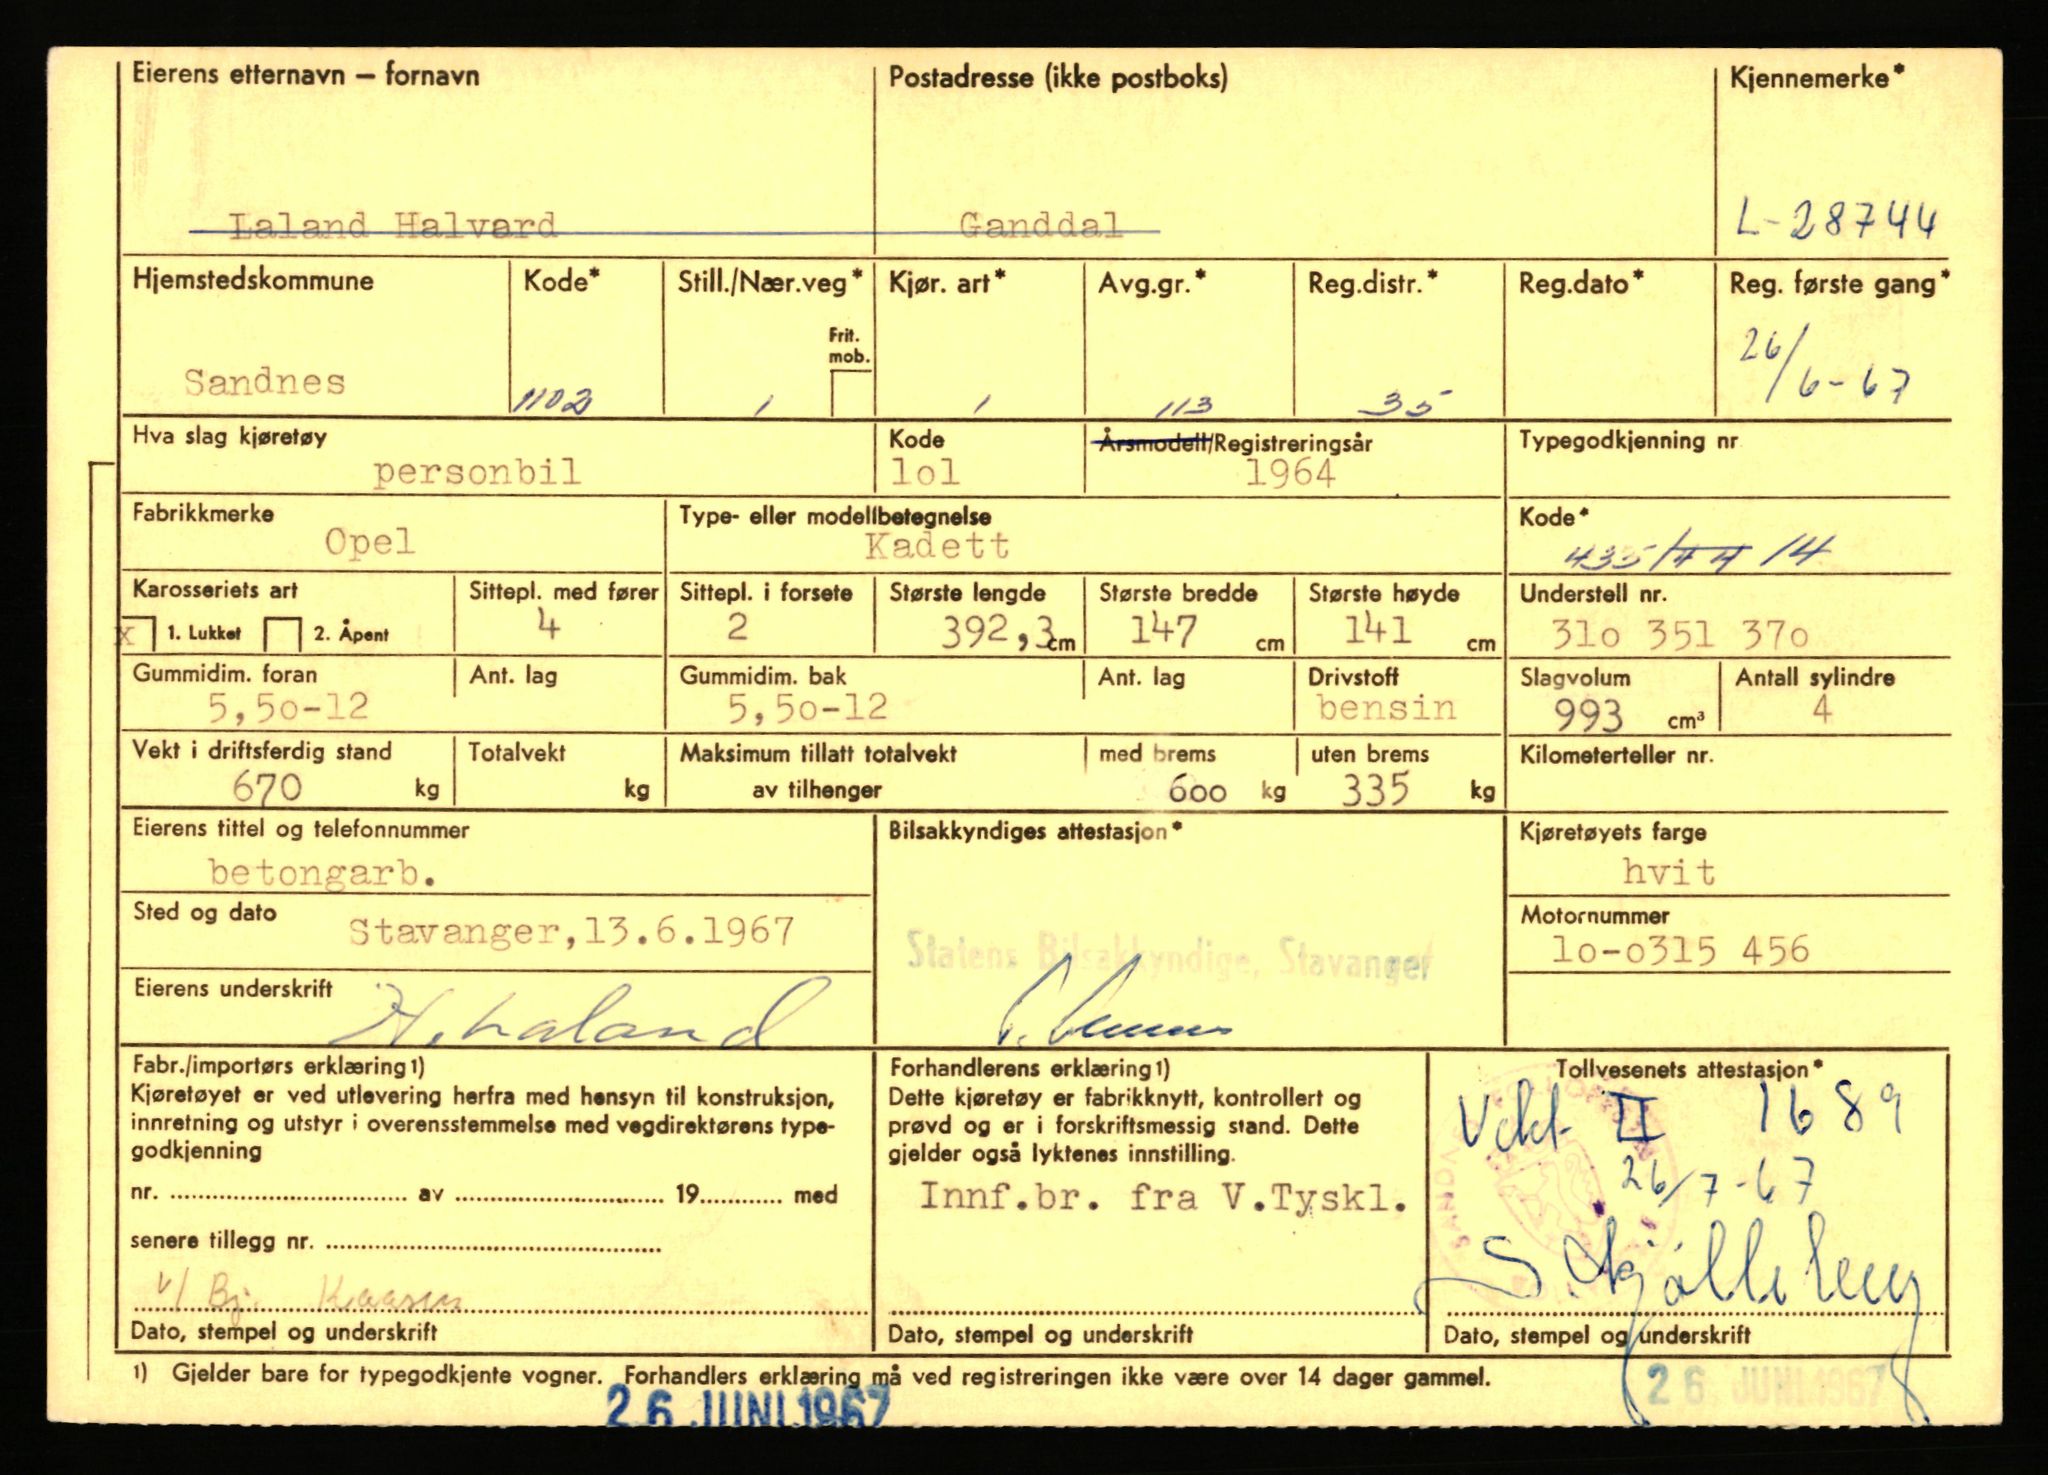 Eierens etternavn – fornavn Postadresse (ikke postboks) Kjennemerke*
Laland Halvard Ganddal L-28744
Hjemstedskommune Kode* Still./Nær.veg* Kjør. art* Avg.gr.* Reg.distr.* Reg.dato* Reg. første gang*
Frit.
mob.
26/6-67
Sandnes 1102 1 1 113 35
Hva slag kjøretøy Kode Årsmodell/Registreringsår Typegodkjenning nr
personbil lol 1964
Fabrikkmerke Type- eller modellbetegnelse Kode*
Opel Kadett 435/44 14
Karosseriets art Sittepl. med fører Sittepl. i forsete Største lengde Største bredde Største høyde Understell nr.
x 1. Lukket 2. Åpent 4 2 392,3 cm 147 cm 141 cm 31o 351 37o
Gummidim. foran Ant. lag Gummidim. bak Ant. lag Drivstoff Slagvolum Antall sylindre
5,5o-12 5,5o-12 bensin 993 cm³ 4
Vekt i driftsferdig stand Totalvekt Maksimum tillatt totalvekt med brems uten brems Kilometerteller nr.
670 kg kg av tilhenger 6oo kg 335 kg
Eierens tittel og telefonnummer Bilsakkyndiges attestasjon* Kjøretøyets farge
betongarb. hvit
Sted og dato Stavanger,13.6.1967 Motornummer
Statens Bilsakkyndige, Stavanger lo-o315 456
Eierens underskrift H. Laland
Fabr./importørs erklæring1) Forhandlerens erklæring1) Tollvesenets attestasjon*
Kjøretøyet er ved utlevering herfra med hensyn til konstruksjon, Dette kjøretøy er fabrikknytt, kontrollert og Vekt II 1689
innretning og utstyr i overensstemmelse med vegdirektørens type- prøvd og er i forskriftsmessig stand. Dette
godkjenning gjelder også lyktenes innstilling.
nr. av 19 med Innf.br. fra V.Tyskl. 26/7-67
senere tillegg nr.
v/ Bj. Kaasen
Dato, stempel og underskrift Dato, stempel og underskrift Dato, stempel og underskrift
1) Gjelder bare for typegodkjente vogner. Forhandlers erklæring må ved registreringen ikke være over 14 dager gammel.
26 JUNI 1967 26 JUNI 1967